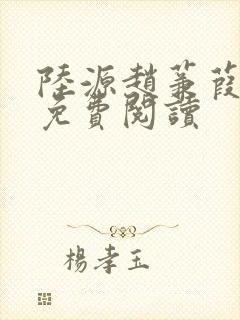 陸源趙蒹葭
免費閱讀
楊孝玉